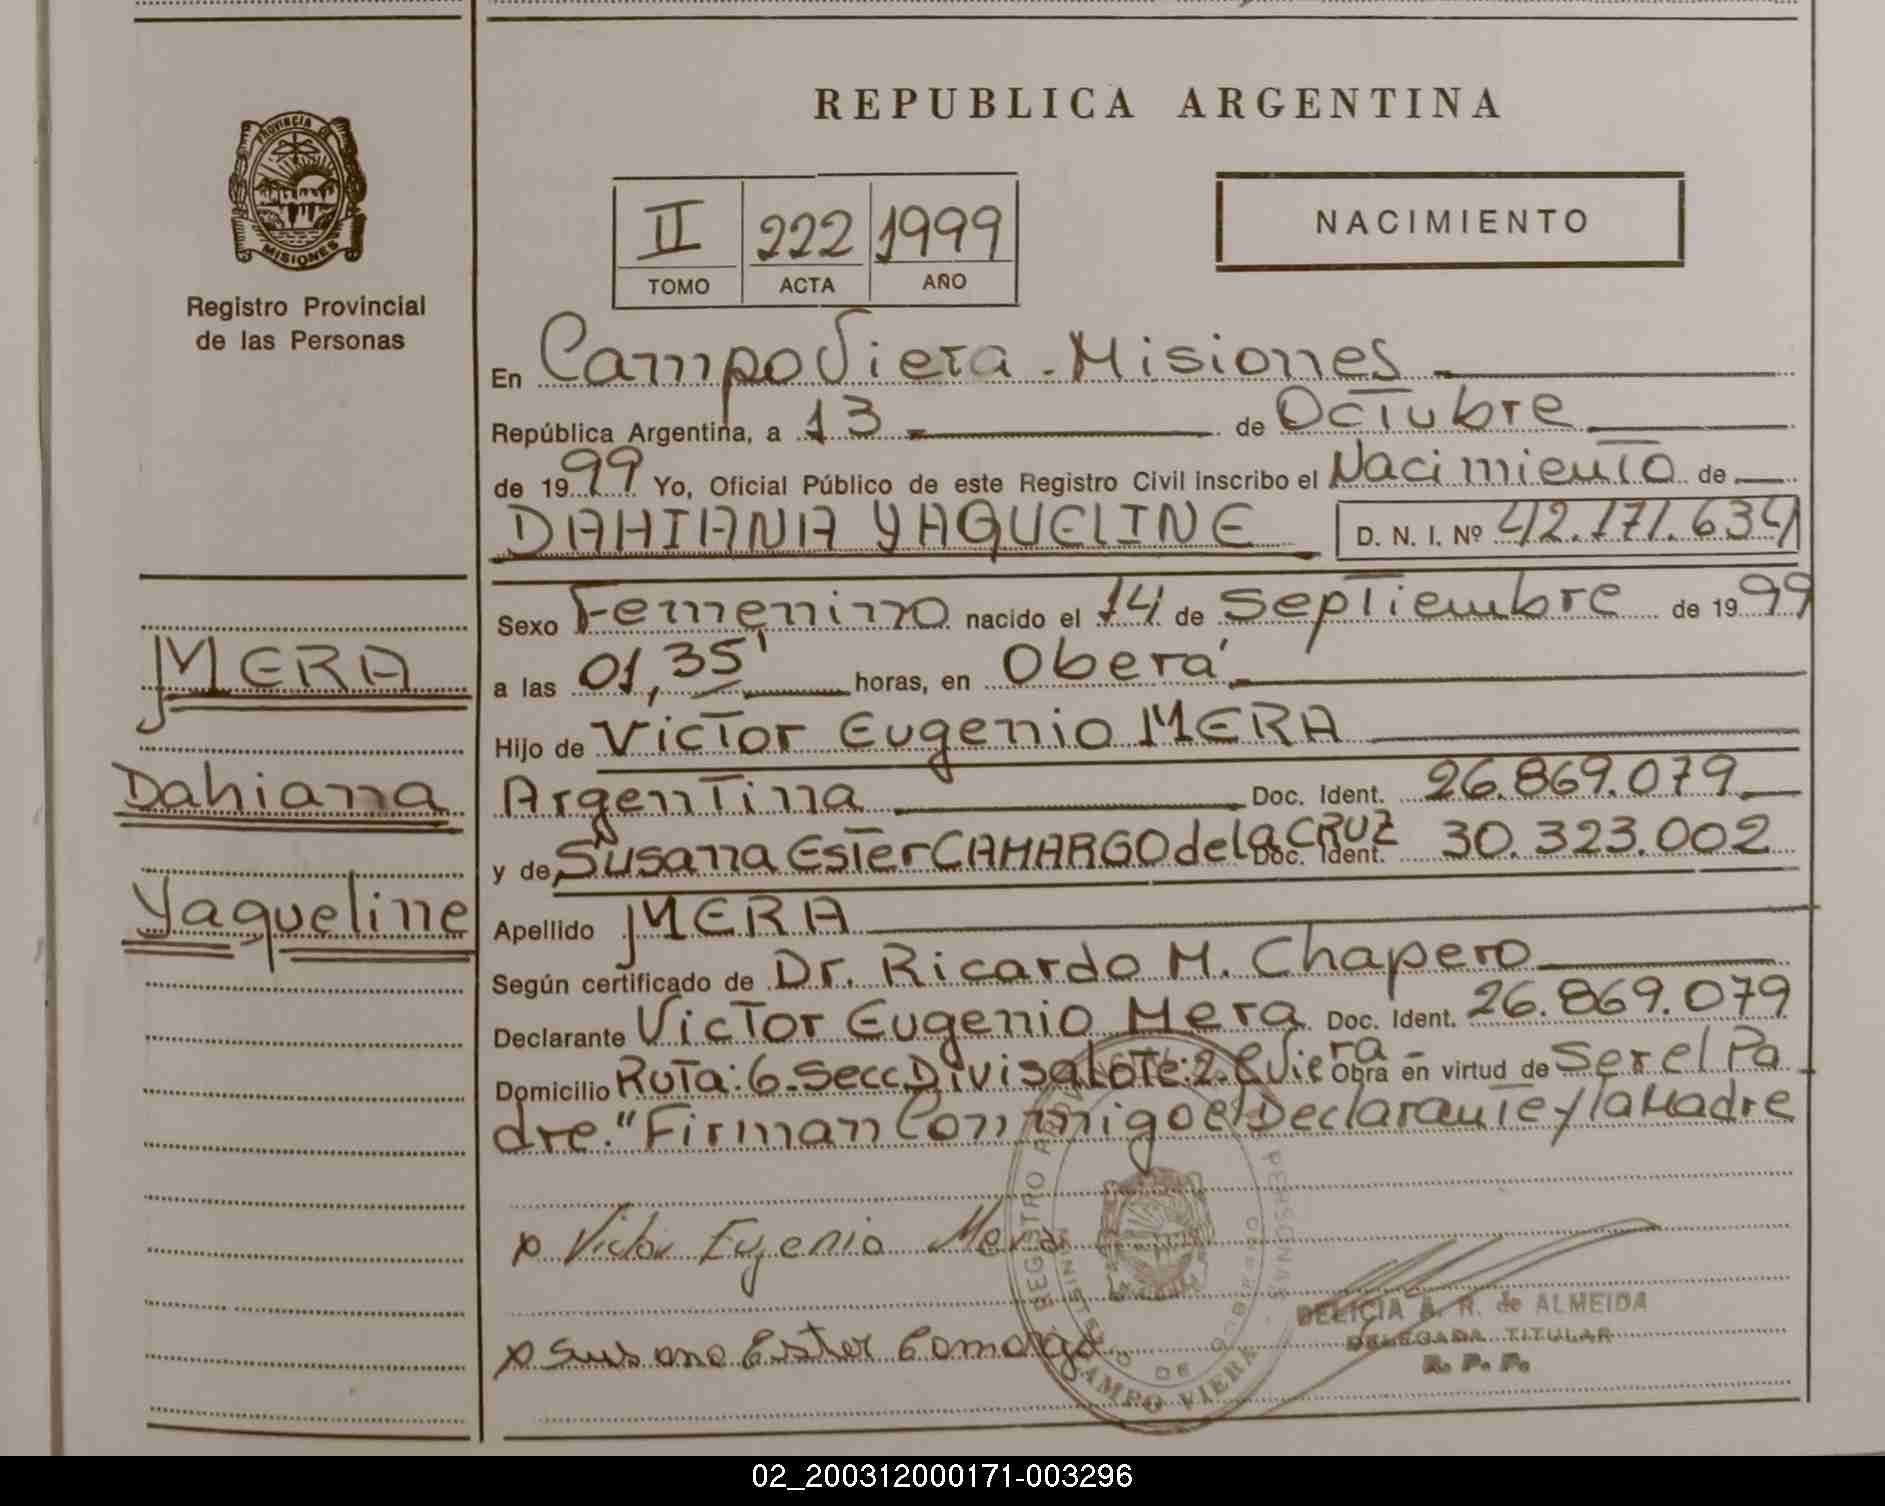 PROVINCIA DE
MISIONES
Registro Provincial
de las Personas
MERA
Dahiana
Yaqueline
REPUBLICA ARGENTINA
II 222 1999
TOMO ACTA AÑO
NACIMIENTO
En Campo Viera - Misiones
República Argentina, a 13 de Octubre
de 1999 Yo, Oficial Público de este Registro Civil inscribo el Nacimiento de
DAHIANA YAQUELINE D. N. I. Nº 42.171.634
Sexo Femenino nacido el 14 de Septiembre de 1999
a las 01,35' horas, en Oberá
Hijo de Victor Eugenio MERA
Argentina Doc. Ident. 26.869.079
y de Susana Ester CAMARGO de la CRUZ Doc. Ident. 30.323.002
Apellido MERA
Según certificado de Dr. Ricardo M. Chapero
Declarante Victor Eugenio Mera Doc. Ident. 26.869.079
Domicilio Ruta: 6. Secc. Divisa Lote: 2. C Viera Obra en virtud de Ser el Pa
dre. "Firman Conmigo el Declarante y la Madre
x Victor Eugenio Mera
x Susana Ester Camargo
DELICIA A. R. de ALMEIDA
DELEGADA TITULAR
R. P. P.
CAMPO VIERA
02_200312000171-003296